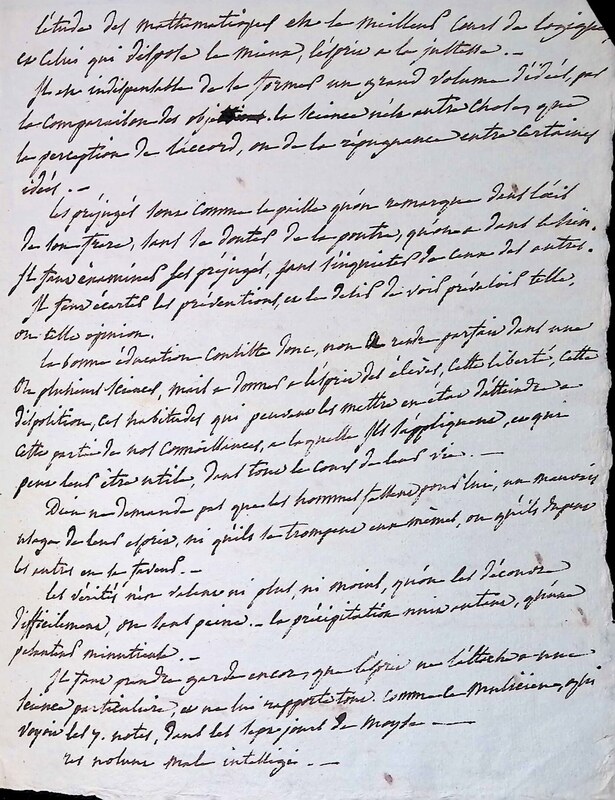 l'étude des mathématiques est le meilleur cours de logique,
et celui qui dispose le mieux, l'esprit a la justesse. —
Il est indispensable de se former un grand volume d'idées, par
la comparaison des objets la science n'est autre chose, que
la perception de l'accord, ou de la répugnance entre certaines
idées. —
Les préjugés sont comme la paille qu'on remarque dans l'œil
de son frère, sans se douter de la poutre, qu'on a dans le sien.
Il faut éxaminer ses préjugés, sans s'inquieter de ceux des autres.
Il faut écarter les préventions, et le desir de voir prevaloir telle,
ou telle opinion.
la bonne éducation consiste donc, non a rendre parfait dans une
ou plusieurs sciences, mais a donner a l'esprit des élèves, cette liberté, cette
disposition, ces habitudes qui peuvent les mettre en état d'atteindre a
cette partie de nos connoissances, a laquelle ils s'appliquent, et qui
peut leur être utile, dans tout le cours de leur vie. —
Dieu ne demande pas que les hommes fassent pour lui, un mauvais
usage de leur esprit, ni qu'ils se trompent eux mêmes, ou qu'ils dupent
les autres en sa faveur. —
les vérités n'en valent ni plus, ni moins, qu'on les découvre
difficilement, ou sans peine. — la précipitation nuit autant, qu'une
pesanteur minutieuse. —
Il faut prendre garde encor, que l'esprit ne s'attache a une
science particuliere, et ne lui rapporte tout. comme ce musicien, qui
voyoit les 7. notes, dans les sept jours de Moyse —
res notunt male intelligi. —